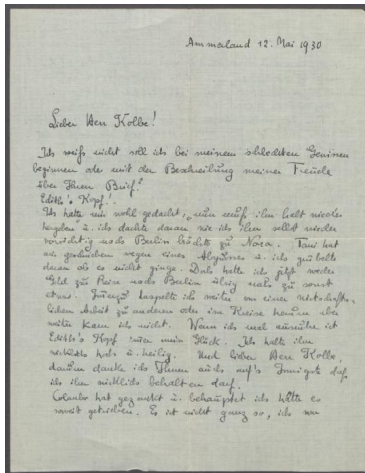 Ammerland 12. Mai 1930
Lieber Herr Kolbe!
Ich weiß nicht soll ich bei meinem schlechten Gewissen
beginnen oder mit der Beschreibung meiner Freude
über Ihren Brief!
Edith's Kopf!
Ich hatte mir wohl gedacht, nun muß ihn halt wieder
hergeben u. ich dachte daran wie ich ihn selbst wieder
vorsichtig nach Berlin brächte zu Nora. Tani hat
mir geschrieben wegen eines Abgusses u. ich
daran ob es nicht ginge. Dabei hatte ich jetzt weder
Geld zur Reise nach Berlin übrig noch zu sonst
etwas. haspelte ich weiter von einer wirtschaft-
lichen Arbeit zu anderen oder im Kreise herum aber
weiter kam ich nicht. Wenn ich mal ausruhe ist
Edith's Kopf immer mein Glück. Ich halte ihn
wirklich hoch u. heilig. Und lieber Herr Kolbe,
darum danke ich Ihnen auch auf's Innigste daß
ich ihn wirklich behalten darf.
hat gezankt u. behauptet ich hätte es
soweit getrieben. Es ist nicht ganz so, ich war